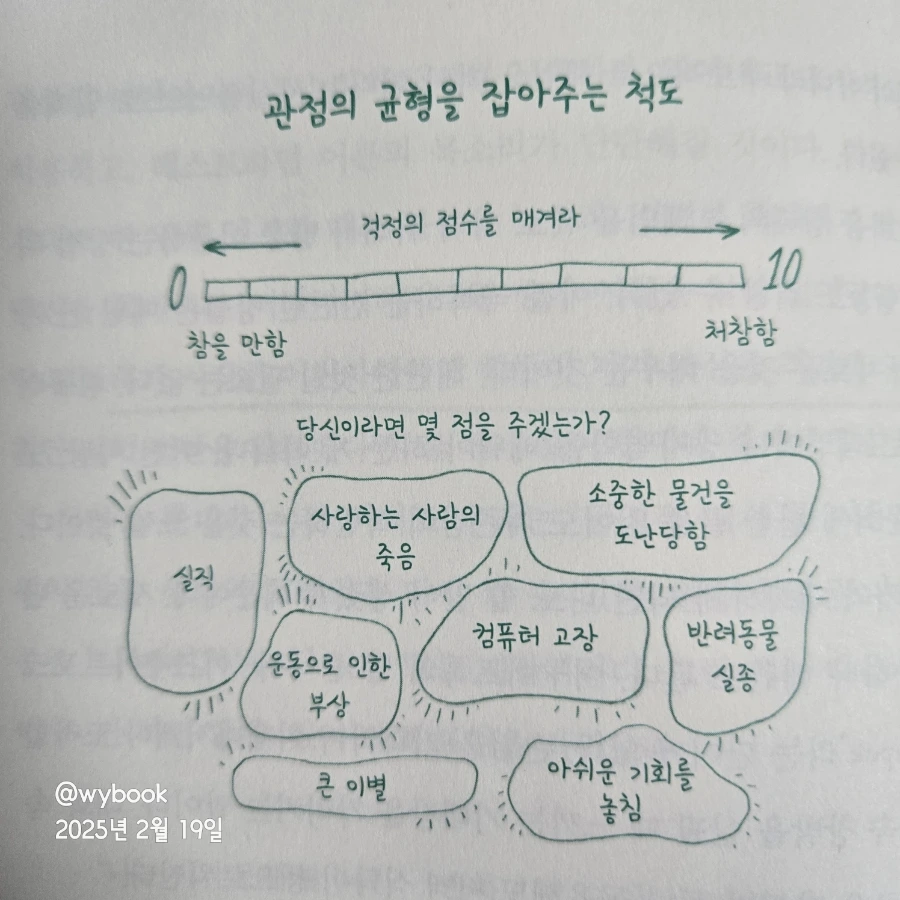 관점의 균형을 잡아주는 척도
걱정의 점수를 매겨라
0 10
참을 만함 처참함
당신이라면 몇 점을 주겠는가?
실직
사랑하는 사람의
죽음
소중한 물건을
도난당함
운동으로 인한
부상
컴퓨터 고장
반려동물
실종
큰 이별
아쉬운 기회를
놓침
@wybook
2025년 2월 19일